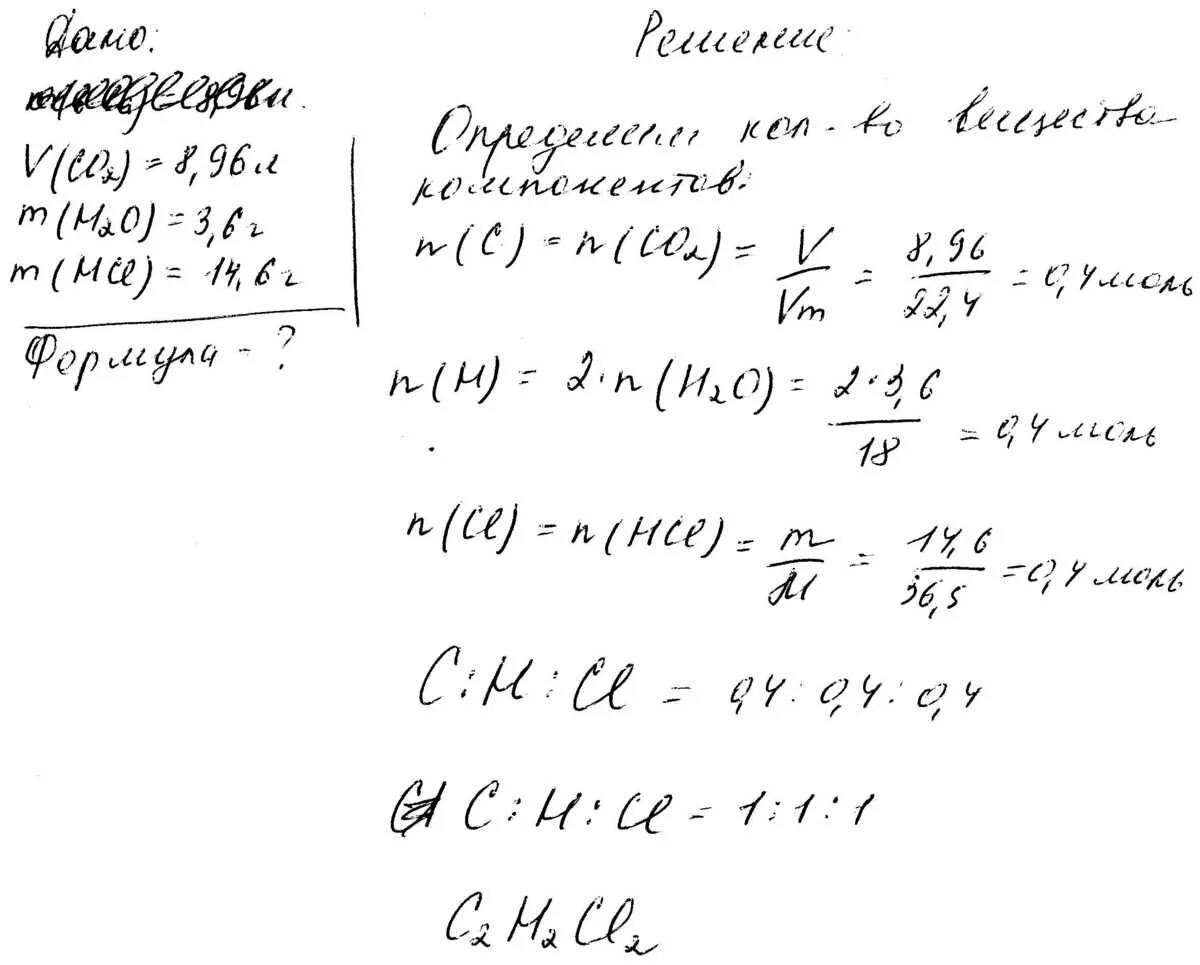 Дано:
V(CO₂) = 8,96 л
m(H₂O) = 3,6 г
m(HCl) = 14,6 г
Формула - ?
Решение:
Определим кол-во вещества
компонентов:
n(C) = n(CO₂) = V/Vm = 8,96/22,4 = 0,4 моль
n(H) = 2·n(H₂O) = 2·3,6/18 = 0,4 моль
n(Cl) = n(HCl) = m/M = 14,6/36,5 = 0,4 моль
C:H:Cl = 0,4:0,4:0,4
C:H:Cl = 1:1:1
C₂H₂Cl₂